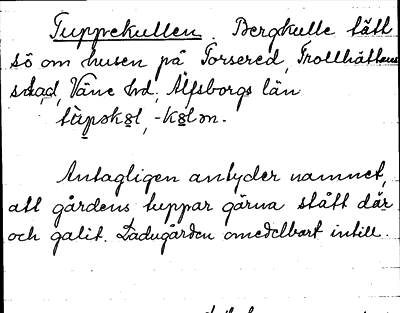 Tuppekullen. Bergkulle tätt
sö om husen på Torsered, Trollhättans
stad, Väne hd, Älfsborgs län
Antagligen antyder namnet,
att gårdens tuppar gärna stått där
och galit. Ladugården omedelbart intill.